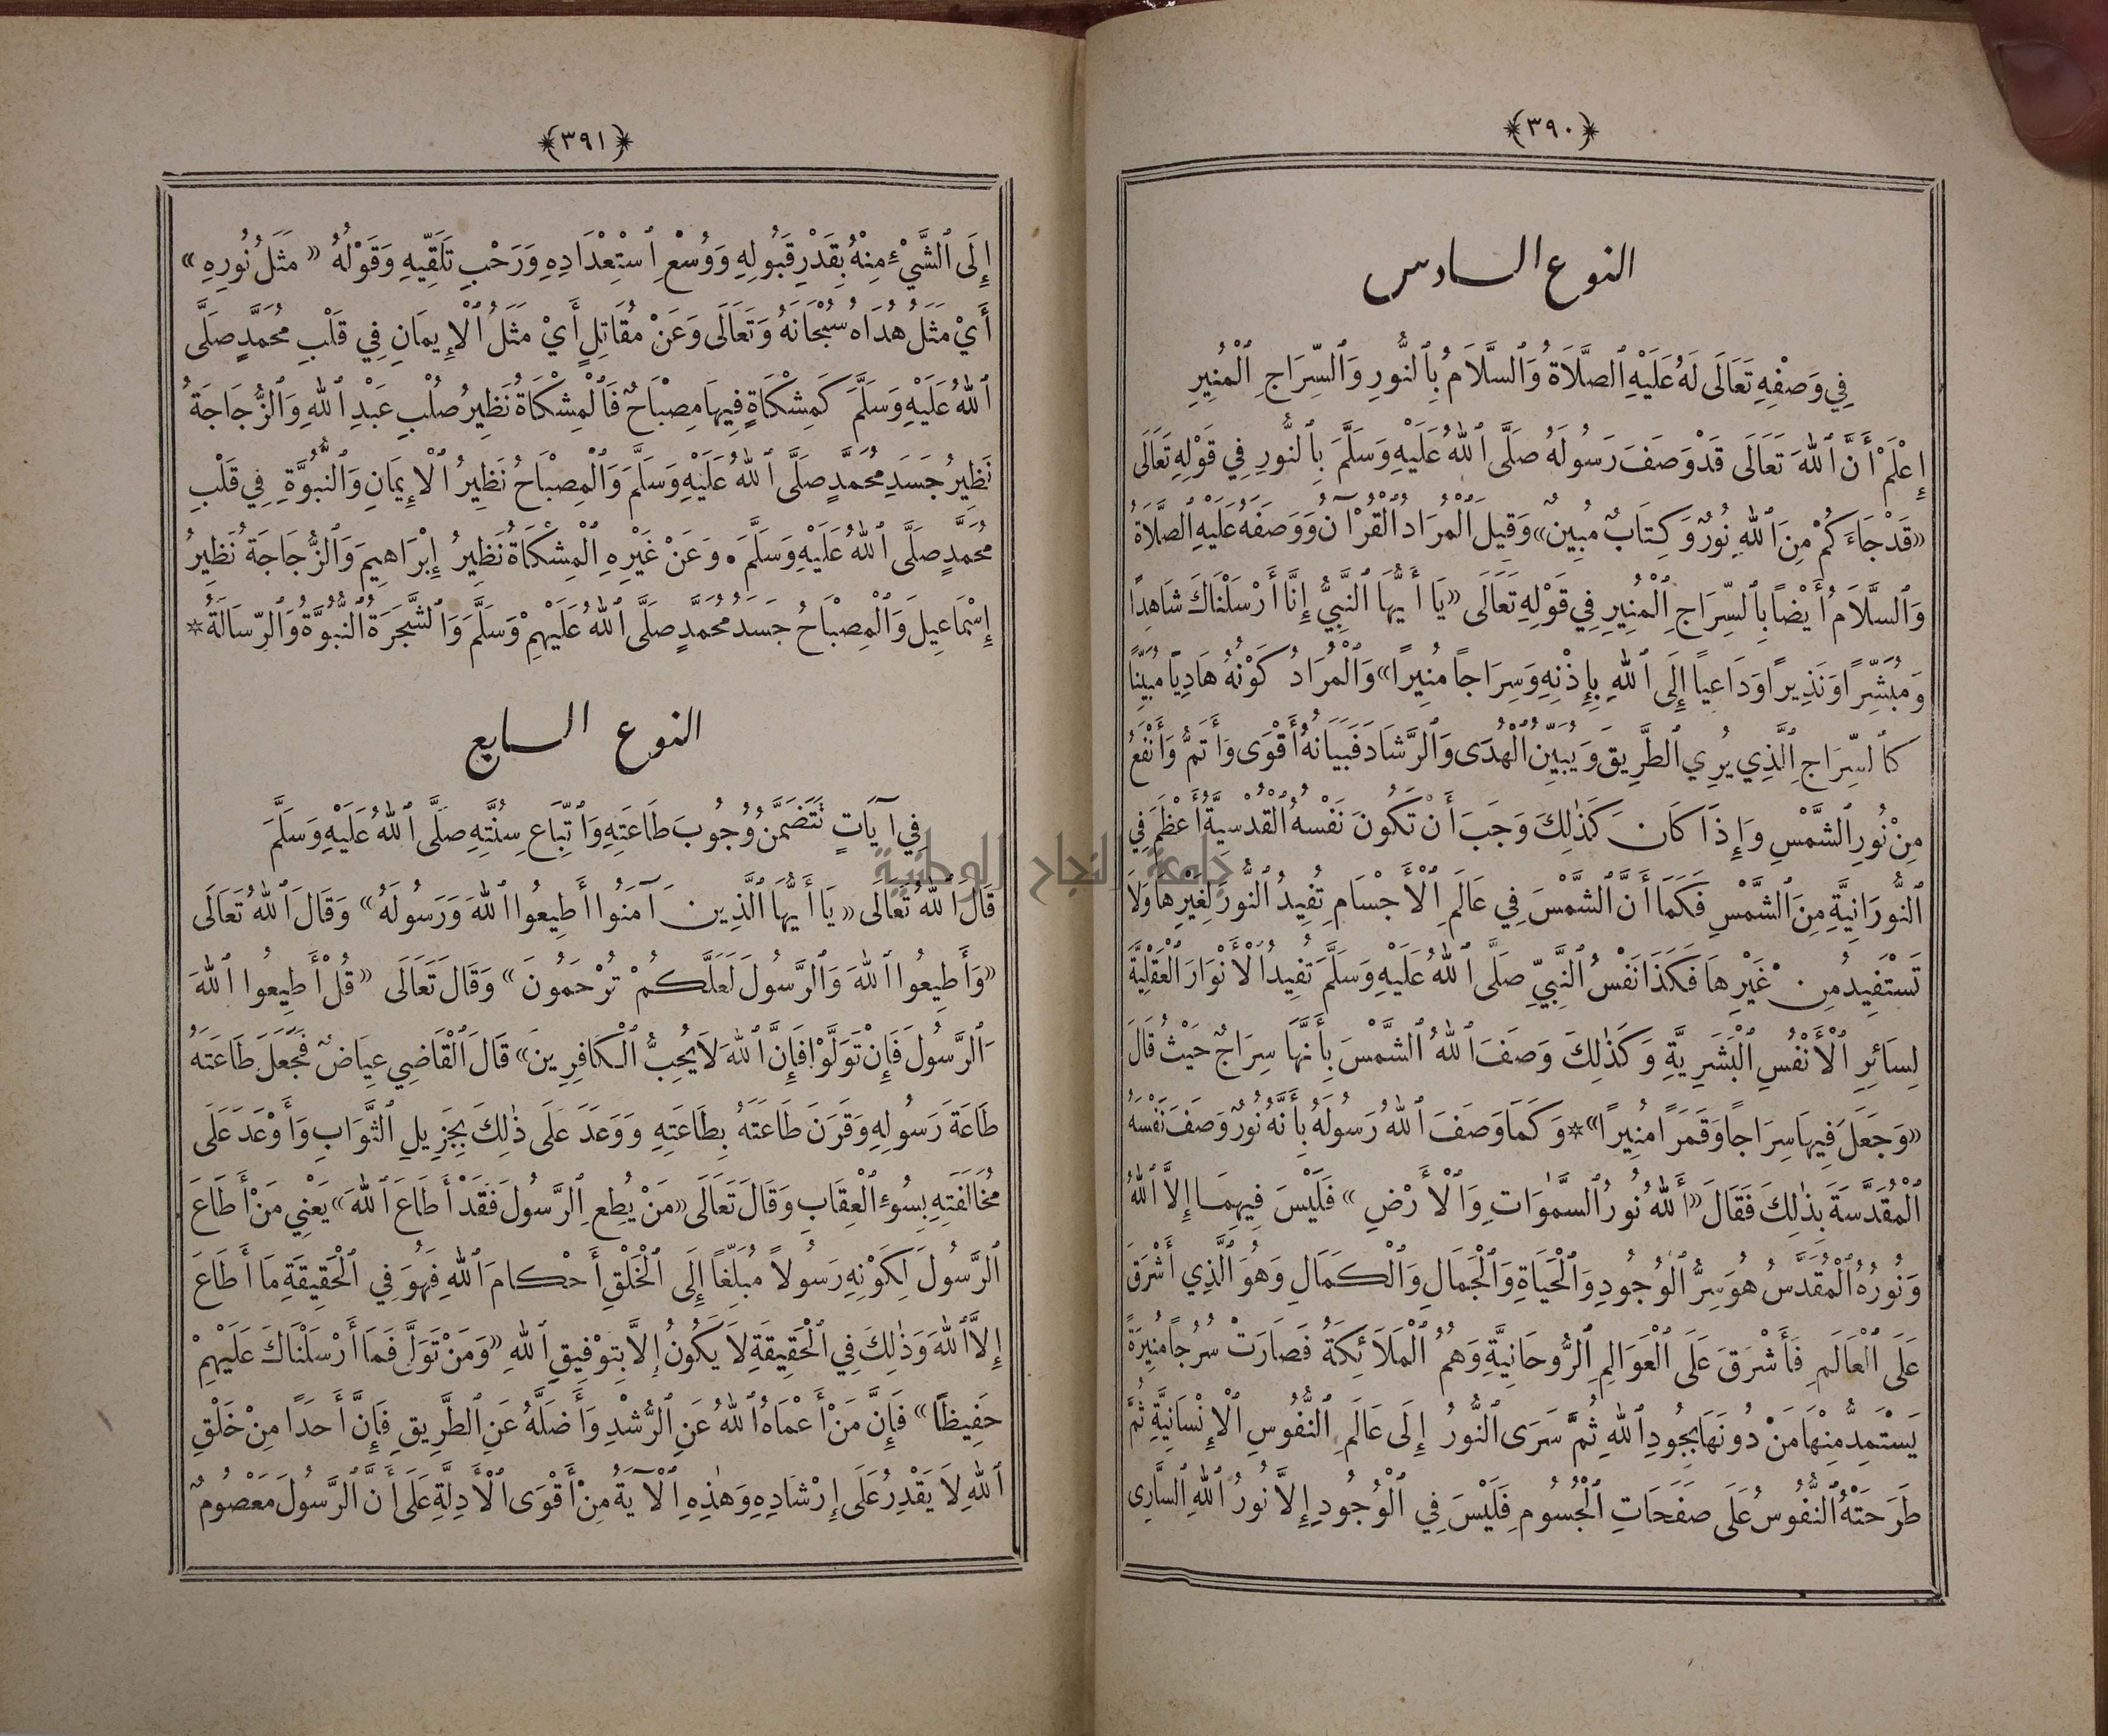 ﴿٣٩٠﴾
النوع السادس
فِي وَصْفِهِ تَعَالَى لَهُ عَلَيْهِ ٱلصَّلَاةُ وَٱلسَّلَامُ بِٱلنُّورِ وَٱلسِّرَاجِ ٱلْمُنِيرِ
إِعْلَمْ أَنَّ ٱللهَ تَعَالَى قَدْ وَصَفَ رَسُولَهُ صَلَّى ٱللهُ عَلَيْهِ وَسَلَّمَ بِٱلنُّورِ فِي قَوْلِهِ تَعَالَى
«قَدْ جَاءَكُمْ مِنَ ٱللهِ نُورٌ وَكِتَابٌ مُبِينٌ» وَقِيلَ ٱلْمُرَادُ ٱلْقُرْآنُ وَوَصَفَهُ عَلَيْهِ ٱلصَّلَاةُ
وَٱلسَّلَامُ أَيْضًا بِٱلسِّرَاجِ ٱلْمُنِيرِ فِي قَوْلِهِ تَعَالَى «يَا أَيُّهَا ٱلنَّبِيُّ إِنَّا أَرْسَلْنَاكَ شَاهِدًا
وَمُبَشِّرًا وَنَذِيرًا وَدَاعِيًا إِلَى ٱللهِ بِإِذْنِهِ وَسِرَاجًا مُنِيرًا» وَٱلْمُرَادُ كَوْنُهُ هَادِيًا مُبَيِّنًا
كَٱلسِّرَاجِ ٱلَّذِي يُرِي ٱلطَّرِيقَ وَيُبَيِّنُ ٱلْهُدَى وَٱلرَّشَادَ فَبَيَانُهُ أَقْوَى وَأَتَمُّ وَأَنْفَعُ
مِنْ نُورِ ٱلشَّمْسِ وَإِذَا كَانَ كَذٰلِكَ وَجَبَ أَنْ تَكُونَ نَفْسُهُ ٱلْقُدْسِيَّةُ أَعْظَمَ فِي
ٱلنُّورَانِيَّةِ مِنَ ٱلشَّمْسِ فَكَمَا أَنَّ ٱلشَّمْسَ فِي عَالَمِ ٱلْأَجْسَامِ تُفِيدُ ٱلنُّورَ لِغَيْرِهَا وَلَا
تَسْتَفِيدُ مِنْ غَيْرِهَا فَكَذَا نَفْسُ ٱلنَّبِيِّ صَلَّى ٱللهُ عَلَيْهِ وَسَلَّمَ تُفِيدُ ٱلْأَنْوَارَ ٱلْعَقْلِيَّةَ
لِسَائِرِ ٱلْأَنْفُسِ ٱلْبَشَرِيَّةِ وَكَذٰلِكَ وَصَفَ ٱللهُ ٱلشَّمْسَ بِأَنَّهَا سِرَاجٌ حَيْثُ قَالَ
«وَجَعَلَ فِيهَا سِرَاجًا وَقَمَرًا مُنِيرًا» * وَكَمَا وَصَفَ ٱللهُ رَسُولَهُ بِأَنَّهُ نُورٌ وَصَفَ نَفْسَهُ
ٱلْمُقَدَّسَةَ بِذٰلِكَ فَقَالَ «أَللهُ نُورُ ٱلسَّمٰوَاتِ وَٱلْأَرْضِ» فَلَيْسَ فِيهِمَا إِلَّا ٱللهُ
وَنُورُهُ ٱلْمُقَدَّسُ هُوَ سِرُّ ٱلْوُجُودِ وَٱلْحَيَاةِ وَٱلْجَمَالِ وَٱلْكَمَالِ وَهُوَ ٱلَّذِي أَشْرَقَ
عَلَى ٱلْعَالَمِ فَأَشْرَقَ عَلَى ٱلْعَوَالِمِ ٱلرُّوحَانِيَّةِ وَهُمُ ٱلْمَلَائِكَةُ فَصَارَتْ سُرُجًا مُنِيرَةً
يَسْتَمِدُّ مِنْهَا مَنْ دُونَهَا بِجُودِ ٱللهِ ثُمَّ سَرَى ٱلنُّورُ إِلَى عَالَمِ ٱلنُّفُوسِ ٱلْإِنْسَانِيَّةِ ثُمَّ
طَرَحَتْهُ ٱلنُّفُوسُ عَلَى صَفَحَاتِ ٱلْجُسُومِ فَلَيْسَ فِي ٱلْوُجُودِ إِلَّا نُورُ ٱللهِ ٱلسَّارِى
﴿٣٩١﴾
إِلَى ٱلشَّيْءِ مِنْهُ بِقَدْرِ قَبُولِهِ وَوُسْعِ ٱسْتِعْدَادِهِ وَرَحْبِ تَلَقِّيهِ وَقَوْلُهُ «مَثَلُ نُورِهِ»
أَيْ مَثَلُ هُدَاهُ سُبْحَانَهُ وَتَعَالَى وَعَنْ مُقَاتِلٍ أَيْ مَثَلُ ٱلْإِيمَانِ فِي قَلْبِ مُحَمَّدٍ صَلَّى
ٱللهُ عَلَيْهِ وَسَلَّمَ كَمِشْكَاةٍ فِيهَا مِصْبَاحٌ فَٱلْمِشْكَاةُ نَظِيرُ صُلْبِ عَبْدِ ٱللهِ وَٱلزُّجَاجَةُ
نَظِيرُ جَسَدِ مُحَمَّدٍ صَلَّى ٱللهُ عَلَيْهِ وَسَلَّمَ وَٱلْمِصْبَاحُ نَظِيرُ ٱلْإِيمَانِ وَٱلنُّبُوَّةِ فِي قَلْبِ
مُحَمَّدٍ صَلَّى ٱللهُ عَلَيْهِ وَسَلَّمَ • وَعَنْ غَيْرِهِ ٱلْمِشْكَاةُ نَظِيرُ إِبْرَاهِيمَ وَٱلزُّجَاجَةُ نَظِيرُ
إِسْمَاعِيلَ وَٱلْمِصْبَاحُ جَسَدُ مُحَمَّدٍ صَلَّى ٱللهُ عَلَيْهِمْ وَسَلَّمَ وَٱلشَّجَرَةُ ٱلنُّبُوَّةُ وَٱلرِّسَالَةُ *
النوع السابع
فِي آيَاتٍ تَتَضَمَّنُ وُجُوبَ طَاعَتِهِ وَٱتِّبَاعِ سُنَّتِهِ صَلَّى ٱللهُ عَلَيْهِ وَسَلَّمَ
قَالَ ٱللهُ تَعَالَى «يَا أَيُّهَا ٱلَّذِينَ آمَنُوا أَطِيعُوا ٱللهَ وَرَسُولَهُ» وَقَالَ ٱللهُ تَعَالَى
«وَأَطِيعُوا ٱللهَ وَٱلرَّسُولَ لَعَلَّكُمْ تُرْحَمُونَ» وَقَالَ تَعَالَى «قُلْ أَطِيعُوا ٱللهَ
وَٱلرَّسُولَ فَإِنْ تَوَلَّوْا فَإِنَّ ٱللهَ لَا يُحِبُّ ٱلْكَافِرِينَ» قَالَ ٱلْقَاضِي عِيَاضٌ فَجَعَلَ طَاعَتَهُ
طَاعَةَ رَسُولِهِ وَقَرَنَ طَاعَتَهُ بِطَاعَتِهِ وَوَعَدَ عَلَى ذٰلِكَ بِجَزِيلِ ٱلثَّوَابِ وَأَوْعَدَ عَلَى
مُخَالَفَتِهِ بِسُوءِ ٱلْعِقَابِ وَقَالَ تَعَالَى «مَنْ يُطِعِ ٱلرَّسُولَ فَقَدْ أَطَاعَ ٱللهَ» يَعْنِي مَنْ أَطَاعَ
ٱلرَّسُولَ لِكَوْنِهِ رَسُولًا مُبَلِّغًا إِلَى ٱلْخَلْقِ أَحْكَامَ ٱللهِ فَهُوَ فِي ٱلْحَقِيقَةِ مَا أَطَاعَ
إِلَّا ٱللهَ وَذٰلِكَ فِي ٱلْحَقِيقَةِ لَا يَكُونُ إِلَّا بِتَوْفِيقِ ٱللهِ «وَمَنْ تَوَلَّى فَمَا أَرْسَلْنَاكَ عَلَيْهِمْ
حَفِيظًا» فَإِنَّ مَنْ أَعْمَاهُ ٱللهُ عَنِ ٱلرُّشْدِ وَأَضَلَّهُ عَنِ ٱلطَّرِيقِ فَإِنَّ أَحَدًا مِنْ خَلْقِ
ٱللهِ لَا يَقْدِرُ عَلَى إِرْشَادِهِ وَهٰذِهِ ٱلْآيَةُ مِنْ أَقْوَى ٱلْأَدِلَّةِ عَلَى أَنَّ ٱلرَّسُولَ مَعْصُومٌ
جامعة النجاح الوطنية